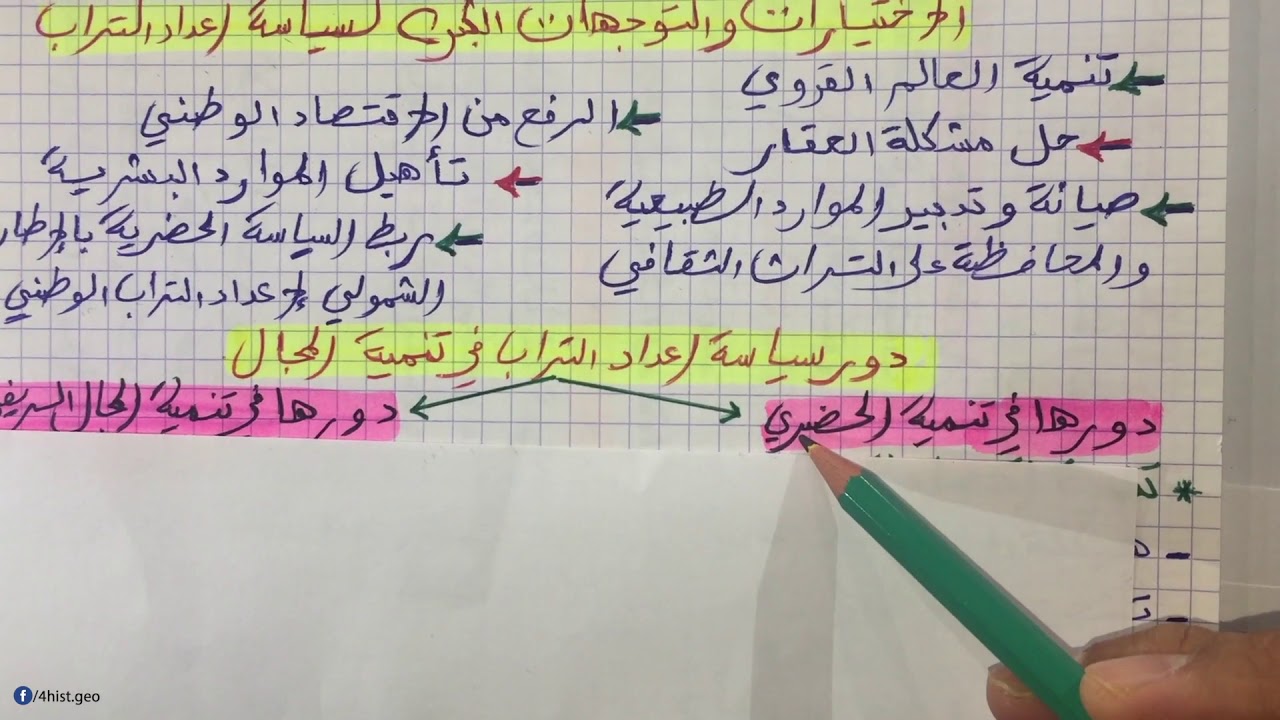 الاختيارات والتوجهات الكبرى لسياسة إعداد التراب
تنمية العالم القروي
حل مشكلة العقار
صيانة وتدبير الموارد الطبيعية
والمحافظة على التراث الثقافي
الرفع من الاقتصاد الوطني
تأهيل الموارد البشرية
ربط السياسة الحضرية بالإطار
الشمولي لإعداد التراب الوطني
دور سياسة إعداد التراب في تنمية المجال
دورها في تنمية الحضري
دورها في تنمية المجال الريفي
*
-
-
/4hist.geo